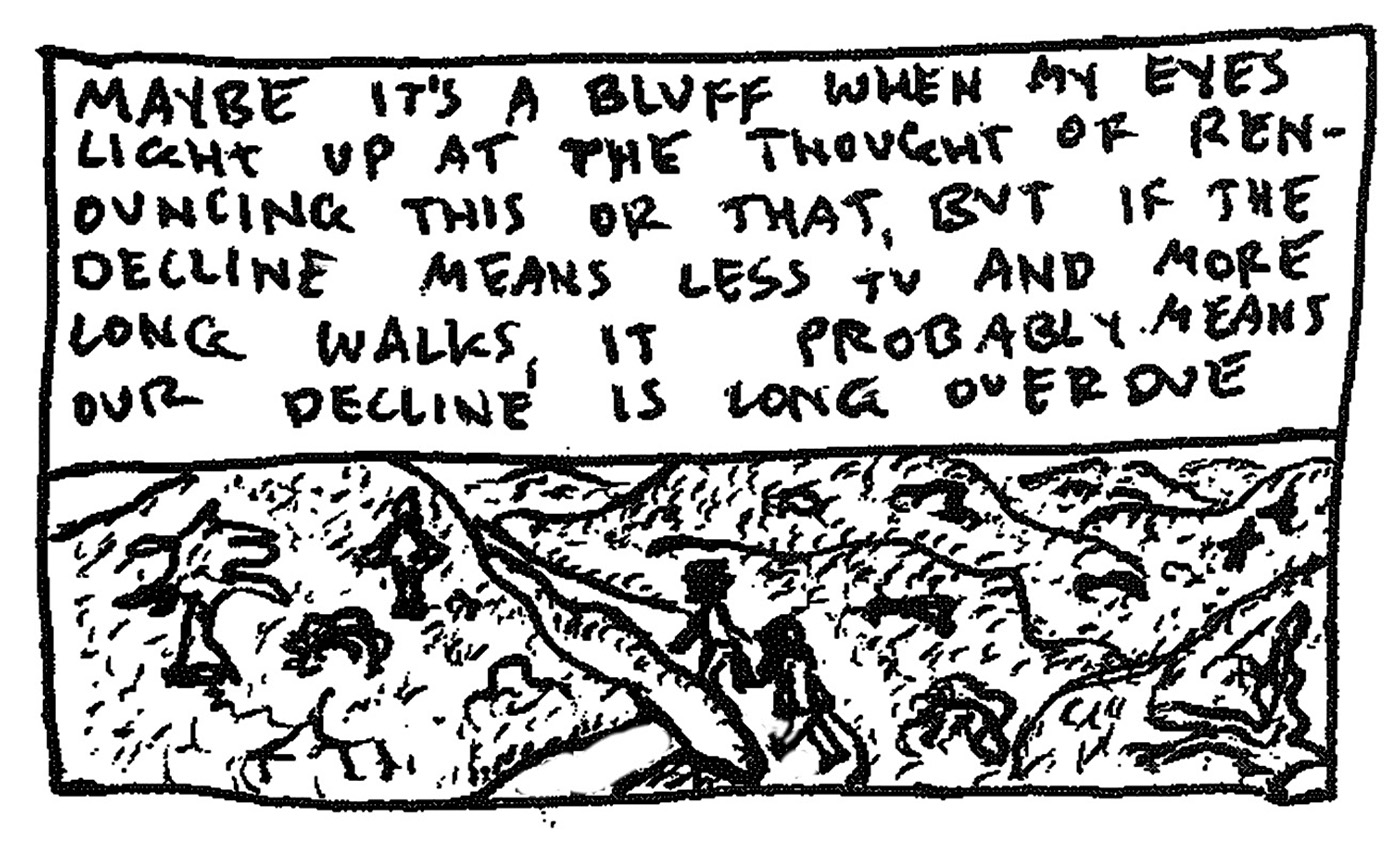 MAYBE IT'S A BLUFF WHEN MY EYES
LIGHT UP AT THE THOUGHT OF REN-
OUNCING THIS OR THAT, BUT IF THE
DECLINE MEANS LESS TV AND MORE
LONG WALKS, IT PROBABLY MEANS
OUR DECLINE IS LONG OVERDUE